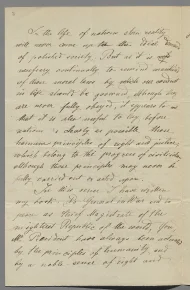 In the life of nations also reality
will never come up to the ideal
of polished society. But as it is
necessary continually to remind
of those moral laws by which our conduct
in life should be governed, although they
are never fully obeyed, it appears to me
that it is also useful to lay before
nations as clearly as possible those
humane principles of right and justice,
which belong to the progress of civilization
although those principles may never be
fully carried out or acted upon.
In this sense I have written
my book. As
you as Chief Magistrate of the
mightiest Republic of the world, you,
Mr President have always been actuated
by the principles of humanity, and
by a noble sense of right and